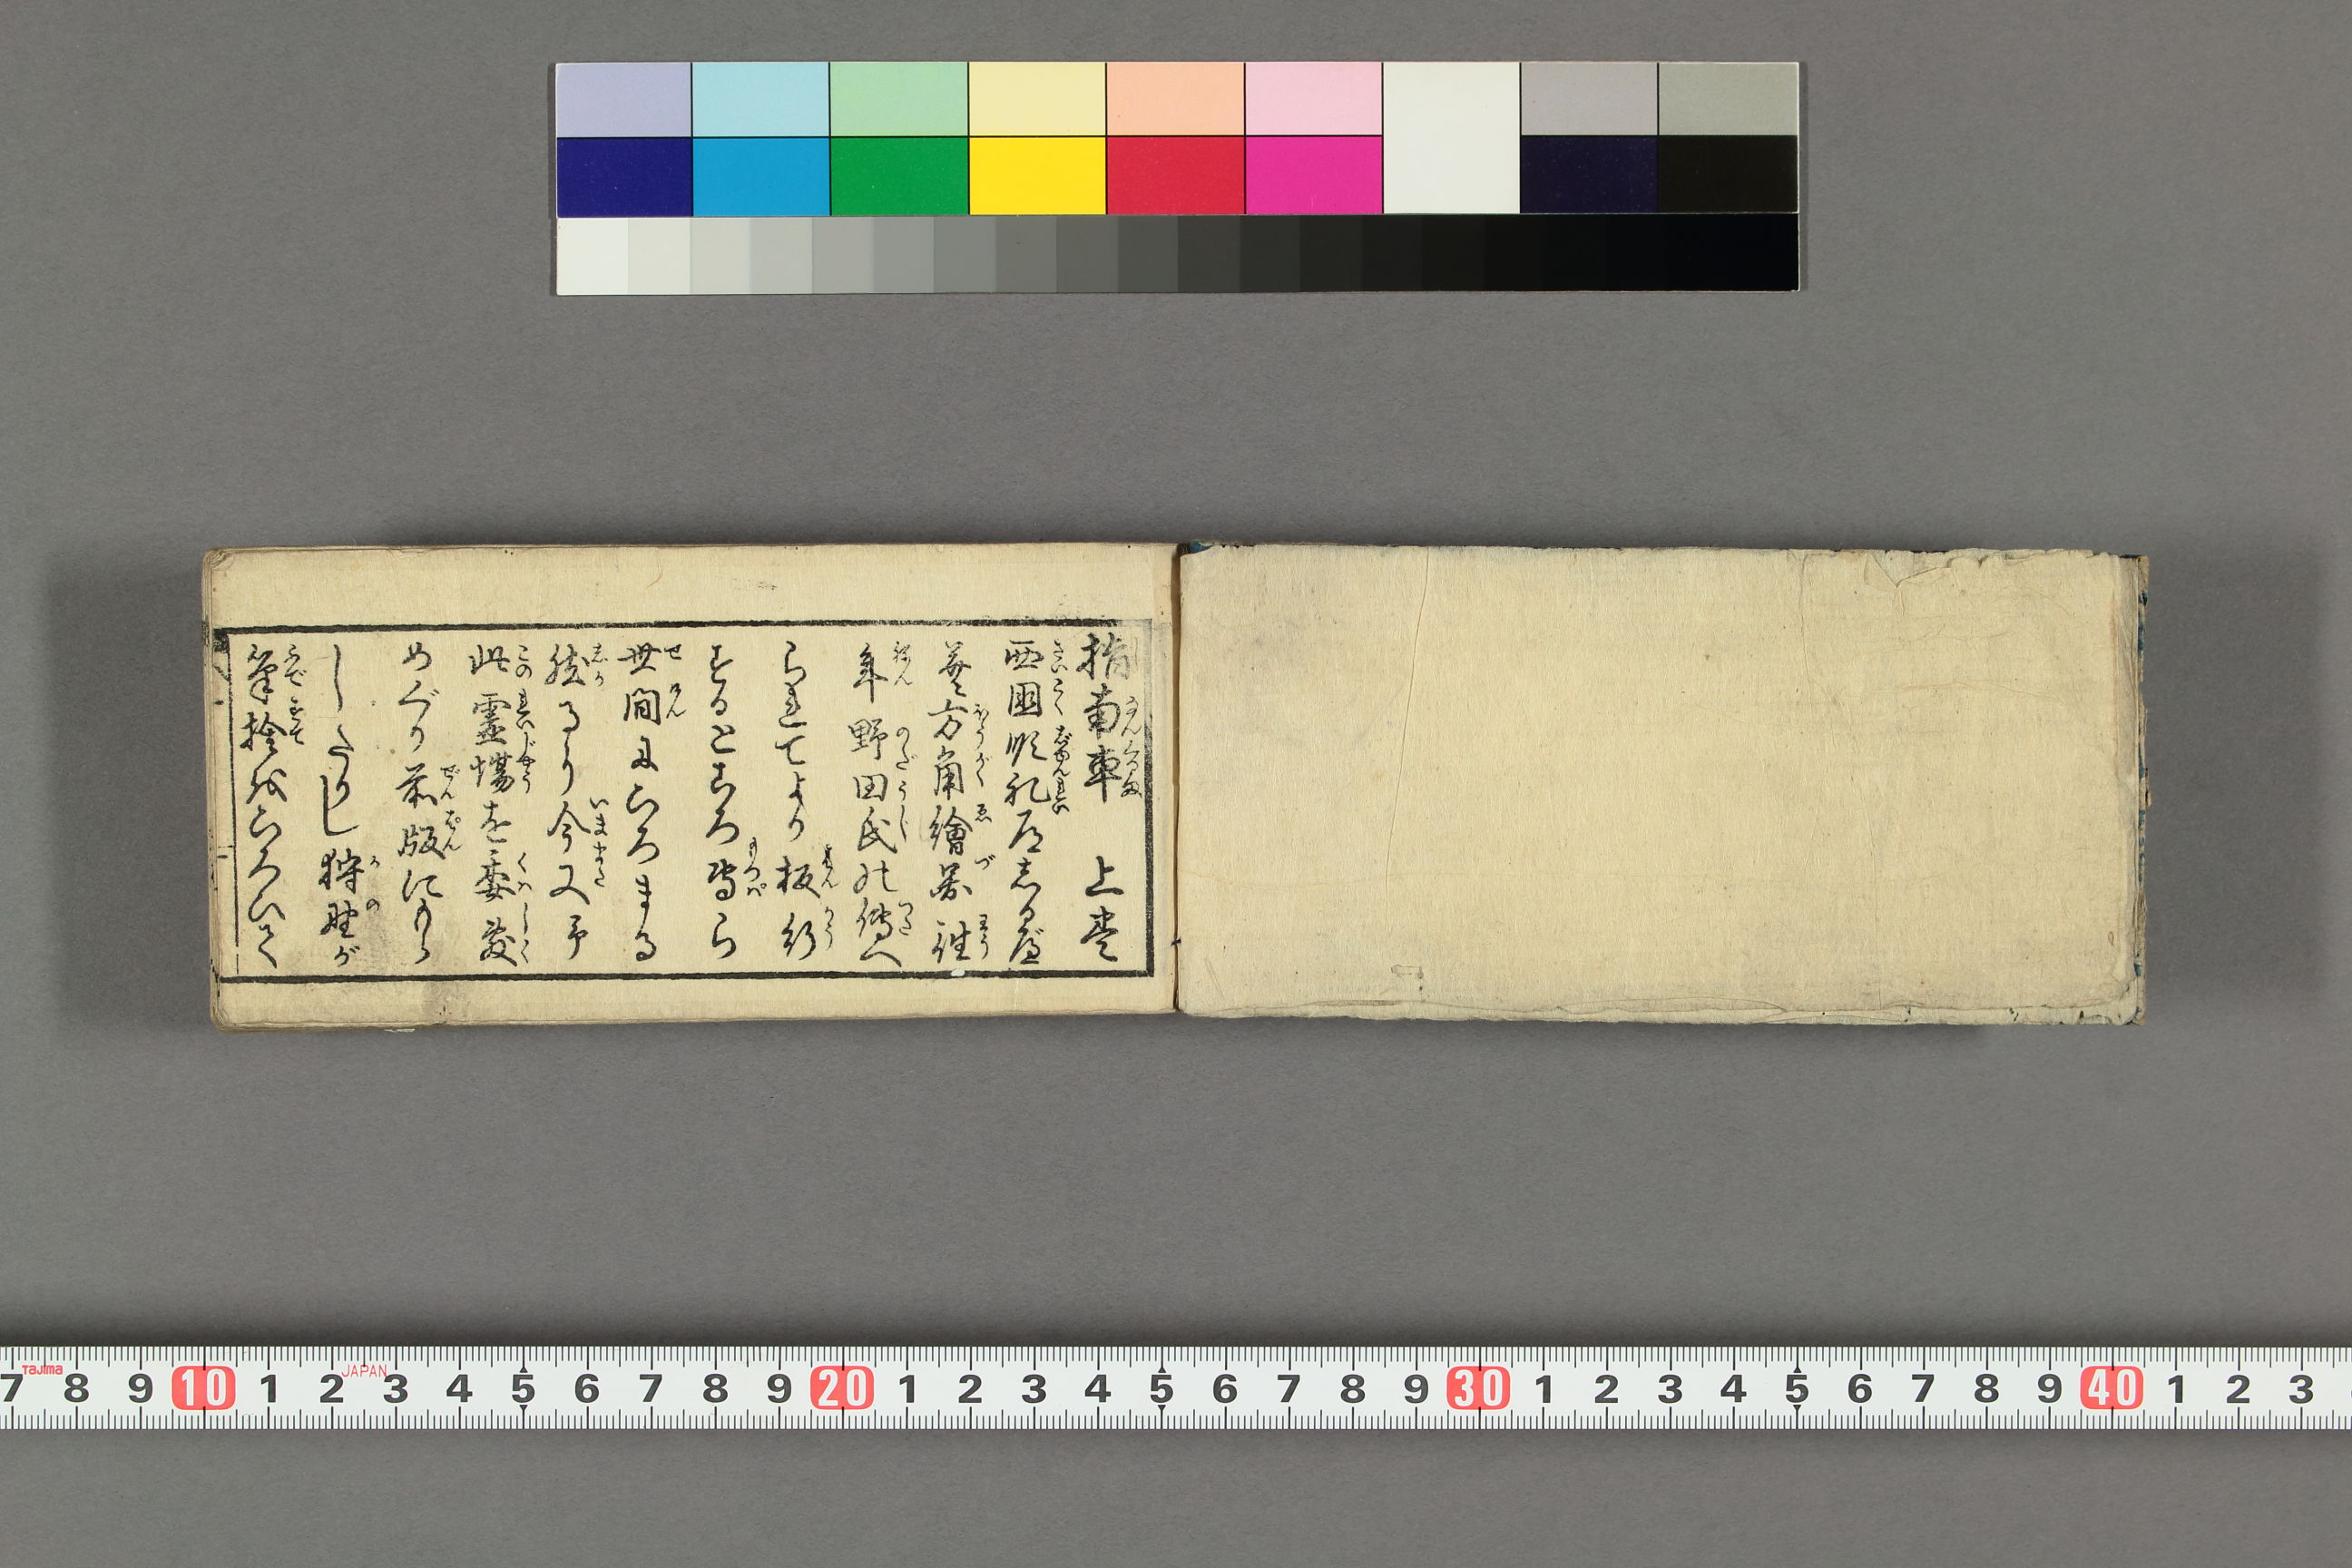 指南車 上巻
西國順礼道志る遍
并方角繪圖往
年野田氏の傳へ
られてより板行
するところ専ら
世間にひろまる
然るに今又予
此霊場を委敷
めぐり前版にもら
したりし狩野が
筆捨松ひろいて
7 8 9 10 1 2 3 4 5 6 7 8 9 20 1 2 3 4 5 6 7 8 9 30 1 2 3 4 5 6 7 8 9 40 1 2 3
Tajima JAPAN